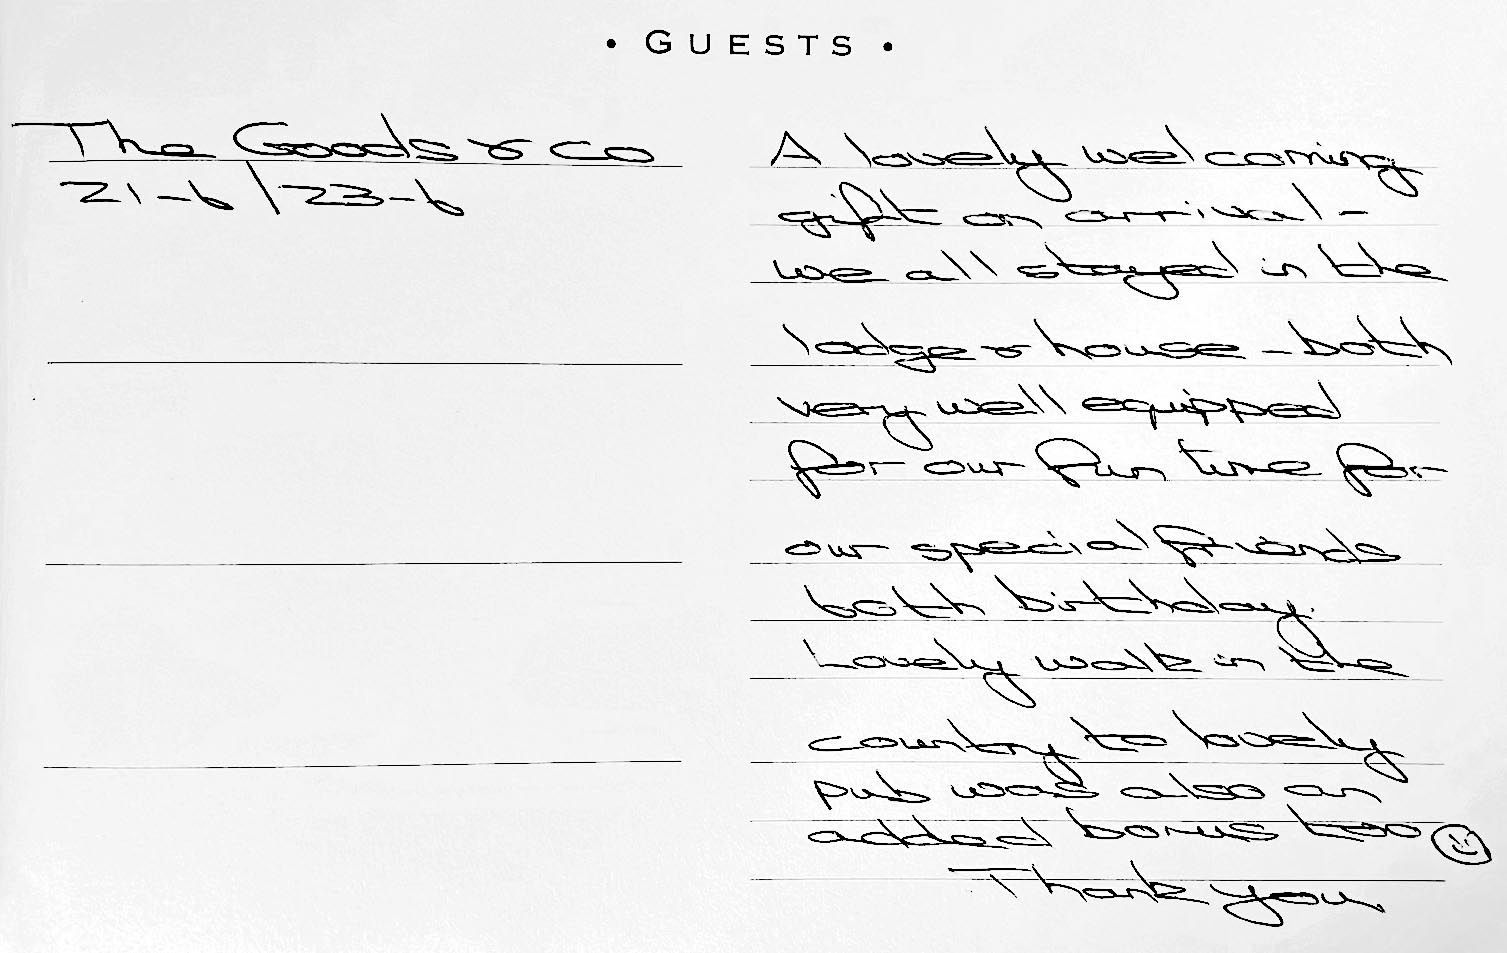 • GUESTS •
The Goods & Co
21-6/23-6
A lovely welcoming
gift on arrival -
we all stayed in the
lodge & house - both
very well equipped
for our fun time for
our special friends
both birthday.
Lovely walk in the
country to lovely
pub was also an
added bonus too ☺
Thank you